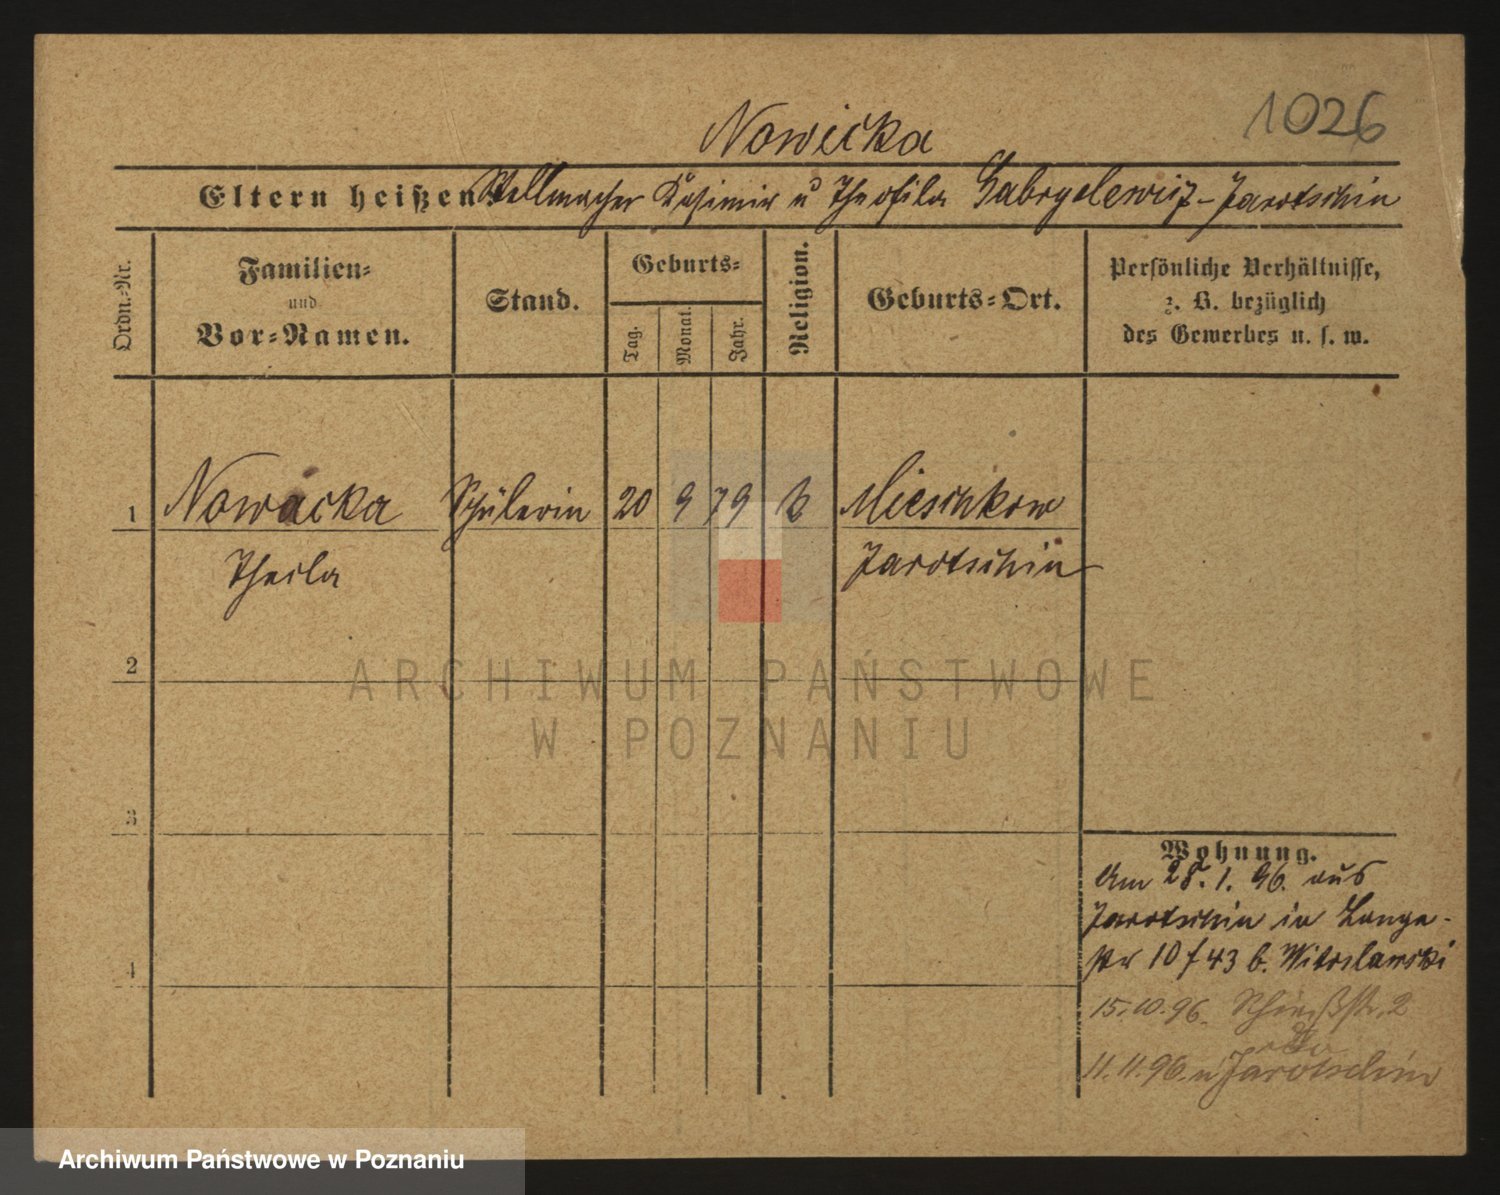 1026
Nowicka
Eltern heißen Stellmacher Kasimir u Theofila Gabryelewicz - Jarotschin
Ordn.-Nr.
Familien-
und
Vor-Namen.
Stand.
Geburts-
Tag.
Monat.
Jahr.
Religion.
Geburts-Ort.
Persönliche Verhältnisse,
z. B. bezüglich
des Gewerbes u. s. w.
1 Nowacka Schülerin 20 9 79 k Mieschkow
Thecla Jarotschin
2
3
4
ARCHIWUM PAŃSTWOWE
W POZNANIU
Wohnung.
Am 28. 1. 96. aus
Jarotschin in Lange-
str 10 f 43 b. Witoslawski
15.10.96. Schießstr. 2
11.11.96. n Jarotschin
Archiwum Państwowe w Poznaniu